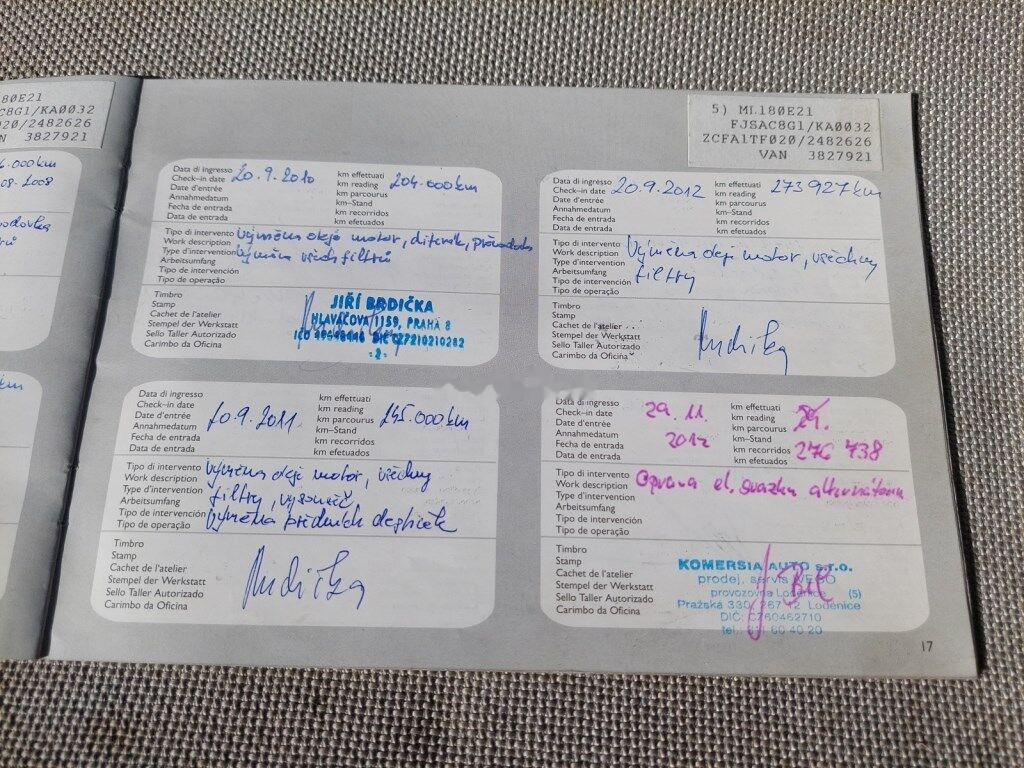 180E21
C8G1/KA0032
020/2482626
N 3827921
.000km
08-2008
5) ML180E21
FJSAC8G1/KA0032
ZCFA1TF020/2482626
VAN 3827921
Data di ingresso
Check-in date
Date d'entrée
Annahmedatum
Fecha de entrada
Data de entrada
20.9.2010
km effettuati
km reading
km parcourus
km–Stand
km recorridos
km efetuados
204.000km
Tipo di intervento
Work description
Type d'intervention
Arbeitsumfang
Tipo de intervención
Tipo de operação
Výměna oleje motor, diferák, převodovka
Výměna všech filtrů
Timbro
Stamp
Cachet de l'atelier
Stempel der Werkstatt
Sello Taller Autorizado
Carimbo da Oficina
JIŘÍ BRDIČKA
HLAVÁČOVA 1159, PRAHA 8
DIČ CZ7210210282
-2-
Data di ingresso
Check-in date
Date d'entrée
Annahmedatum
Fecha de entrada
Data de entrada
20.9.2012
km effettuati
km reading
km parcourus
km–Stand
km recorridos
km efetuados
273927km
Tipo di intervento
Work description
Type d'intervention
Arbeitsumfang
Tipo de intervención
Tipo de operação
Výměna oleje motor, všechny
filtry
Timbro
Stamp
Cachet de l'atelier
Stempel der Werkstatt
Sello Taller Autorizado
Carimbo da Oficina
Data di ingresso
Check-in date
Date d'entrée
Annahmedatum
Fecha de entrada
Data de entrada
20.9.2011
km effettuati
km reading
km parcourus
km–Stand
km recorridos
km efetuados
245.000km
Tipo di intervento
Work description
Type d'intervention
Arbeitsumfang
Tipo de intervención
Tipo de operação
Výměna oleje motor, všechny
filtry, vysoušeč
Výměna předních destiček
Timbro
Stamp
Cachet de l'atelier
Stempel der Werkstatt
Sello Taller Autorizado
Carimbo da Oficina
Data di ingresso
Check-in date
Date d'entrée
Annahmedatum
Fecha de entrada
Data de entrada
29.11.
2012
km effettuati
km reading
km parcourus
km–Stand
km recorridos
km efetuados
276 738
Tipo di intervento
Work description
Type d'intervention
Arbeitsumfang
Tipo de intervención
Tipo de operação
Oprava el. svazku alternátoru
Timbro
Stamp
Cachet de l'atelier
Stempel der Werkstatt
Sello Taller Autorizado
Carimbo da Oficina
KOMERSIA AUTO s.r.o.
prodej, servis IVECO
provozovna Loděnice (5)
Pražská 330, 267 12 Loděnice
DIČ: CZ60462710
tel.: 60 40 20
17